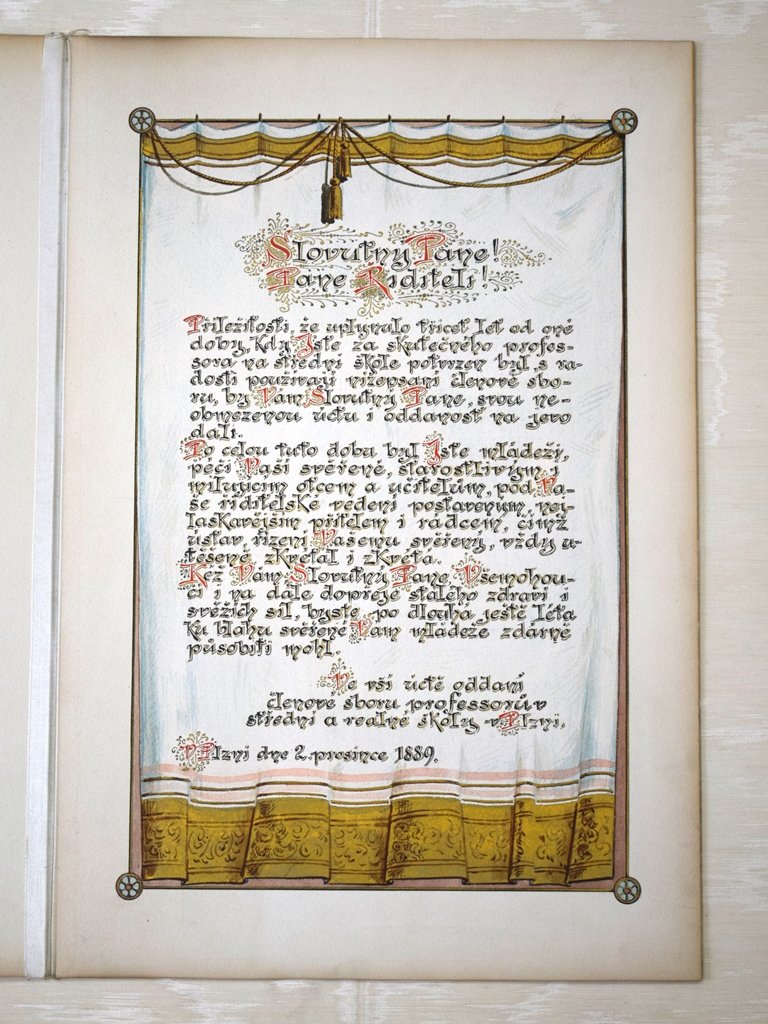 Slovutný Pane!
Pane Řediteli!
Příležitosti, že uplynulo třicet let od oné
doby, kdy Jste za skutečného profes-
sora na střední škole potvrzen byl, s ra-
dostí používají nížepsaní členové sbo-
ru, by Vám Slovutný Pane, svou ne-
obmezenou úctu i oddanost na jevo
dali.
Po celou tuto dobu byl Jste mládeži,
péči Vaší svěřené, starostlivým i
milujícím otcem a učitelům, pod Va-
še ředitelské vedení postaveným, nej-
laskavějším přítelem i rádcem, čímž
ústav, řízení Vašemu svěřený, vždy u-
těšeně zkvetal i zkvétá.
Kéž Vám Slovutný Pane, Všemohou-
cí i na dále dopřeje stálého zdraví i
svěžích sil, byste po dlouhá ještě léta
ku blahu svěřené Vám mládeže zdárně
působiti mohl.
Ve vší úctě oddaní
členové sboru professorův
střední a reálné školy v Plzni.
V Plzni dne 2. prosince 1889.